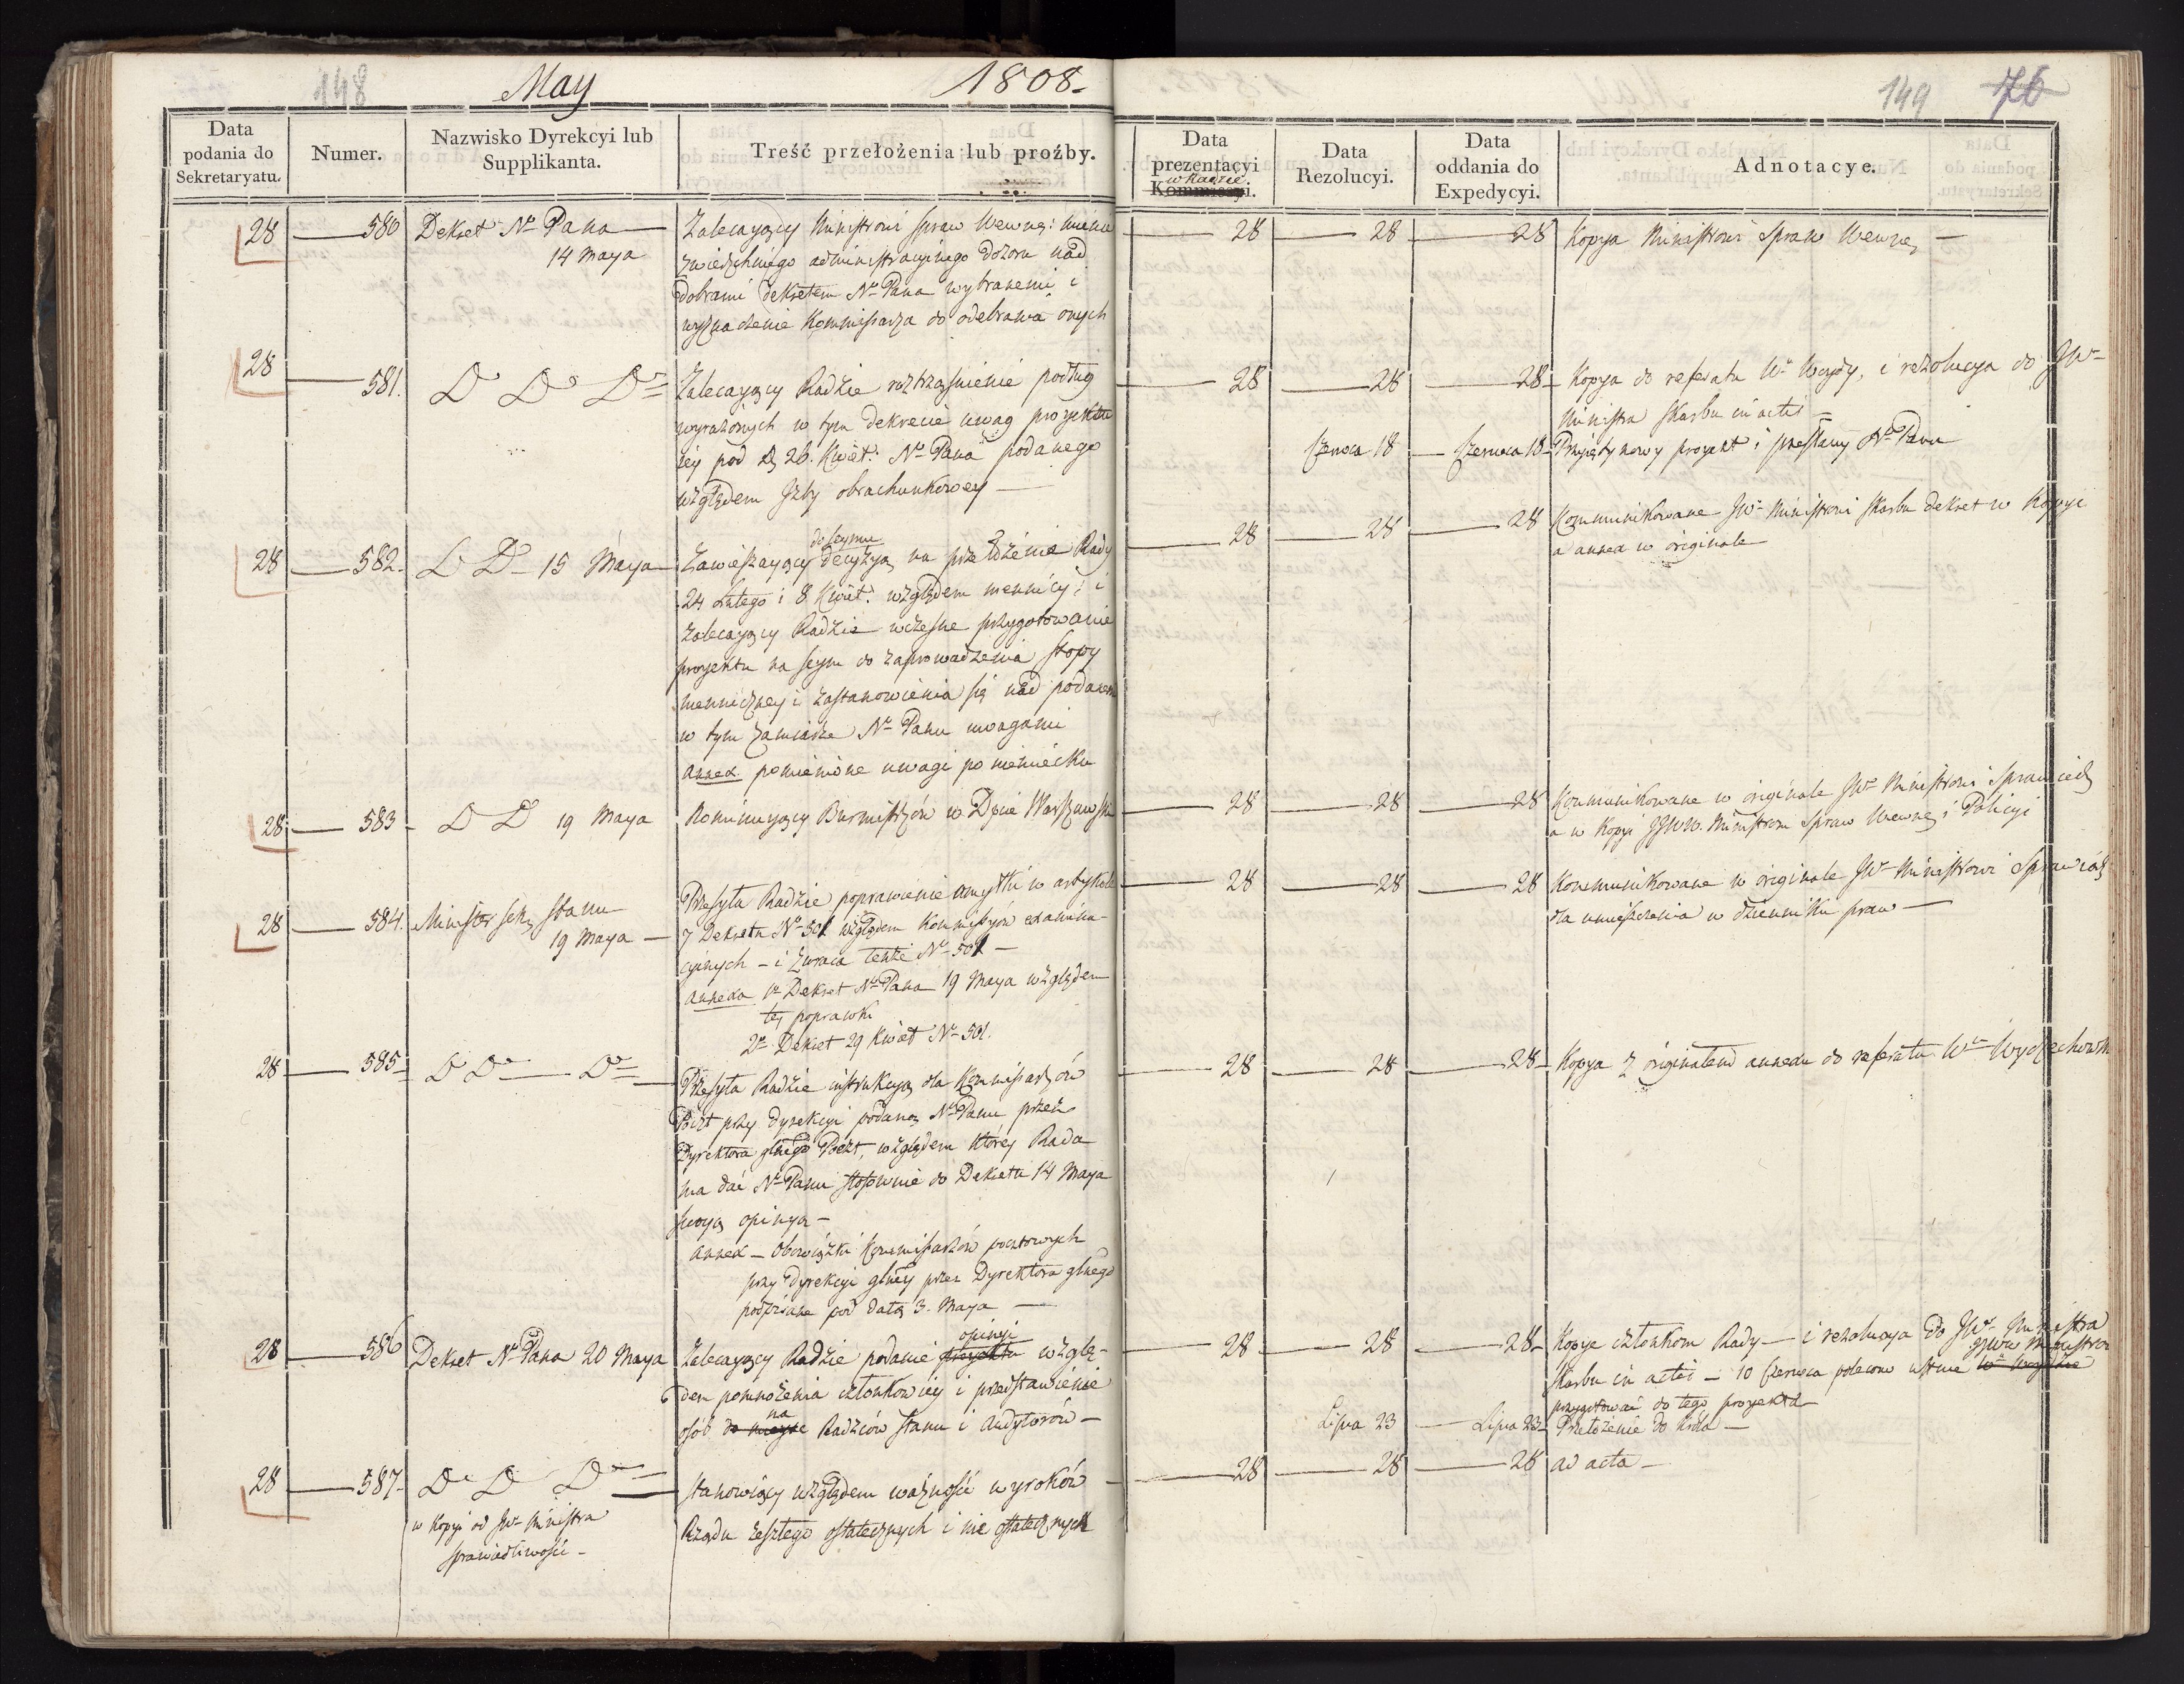 148 May 1808-
149 76
Data podania do Sekretaryatu.
Numer.
Nazwisko Dyrekcyi lub Supplikanta.
Treść przełożenia lub proźby.
Data prezentacyi w Radzie Kommissyi.
Data Rezolucyi.
Data oddania do Expedycyi.
Adnotacye.
28 — 580 Dekret Nº Pana —
14 Maya
Zalecaiący Ministrowi Spraw Wewnę:
zwierzchniego administracyinego dozoru nad
dobrami dekretem Nº Pana wybranemi i
wyznaczenie Kommissarza do odebrania onych
— 28 — 28 — 28 Kopya Ministrowi Spraw Wewnę —
28 — 581. Dº Dº Dº
Zalecaiący Radzie roztrząśnienie podług
wyrażonych w tym dekrecie uwag proiektu
iey pod D. 26. Kwiet: Nº Pana podanego
względem Izby obrachunkowey —
— 28 — 28 — 28 — Kopya do referatu Wº Węgdy, i rezolucya do JWº
Ministra Skarbu in actis —
Czerwca 18 — Czerwca 18 — Przyięty nowy proiekt i przesłany Nº Panu
28 — 582. Dº Dº 15 Maya —
do Seymu
Zawieszaiący decyzyą na przełożenie Rady
24 Lutego i 8 Kwiet. względem mennicy; i
zalecaiący Radzie wczesne przygotowanie
proiektu na Seym do zaprowadzenia stopy
menniczney i zastanowienia się nad podanemi
w tym zamiarze Nº Panu uwagami
annex pomienione uwagi po niemiecku
— 28 — 28 — 28 Kommunikowane JWº Ministrowi Skarbu dekret w Kopyi
a annex w originale
28 — 583 — Dº Dº 19 Maya
Nominuiący Burmistrzów w Dpcie Warszawski
— 28 — 28 — 28 Kommunikowane w originale JWº Ministrowi Sprawiedl
a w Kopyi JJWW. Ministrom Spraw Wewnę i Policyi
28 — 584. Minister Sekr Stanu
19 Maya —
Przesyła Radzie poprawienie omyłki w artykule
7 Dekretu Nº 501 względem Kommissyów examina-
cyinych — i zwraca tenże Nº 501 —
annexa 1º Dekret Nº Pana 19 Maya względem
tey poprawki
2º Dekret 29 Kwiet Nº 501.
— 28 — 28 — 28 Kommunikowane w originale JWº Ministrowi Sprawied
dla umieszczenia w dzienniku praw —
28 — 585 — Dº Dº — Dº —
Przesyła Radzie instrukcyą dla Kommissarzów
Poczt przy dyrekcyi podaną Nº Panu przez
Dyrektora głnego Poczt, względem którey Rada
ma dać Nº Panu stosownie do Dekretu 14 Maya
swoyą opinyą —
annex — Obowiązki Kommissarzów pocztowych
przy Dyrekcyi głney przez Dyrektora głnego
podpisane pod datą 3. Maya —
— 28 — 28 — 28 — Kopya z originałem annexu do referatu Wº Wyczechowski
28 — 586 Dekret Nº Pana 20 Maya
opinyi
Zalecaiący Radzie podanie proiektu wzglę-
dem pomnożenia członków iey i przedstawienie
na
osób do mieysc Radzców Stanu i Audytorów —
— 28 — 28 — 28 — Kopye członkom Rady — i rezolucya do JWº Ministra
JJWW Ministrom
Skarbu in actis — 10 Czerwca polecono ustnie Wº Węgdzie
przygotować do tego proyekta
Lipca 23 — Lipca 23 — Przełożenie do Króla —
28 — 587 — Dº Dº Dº
w Kopyi od JWº Ministra
Sprawiedliwości —
Stanowiący względem ważności wyroków
Rządu zeszłego ostatecznych i nie ostatecznych
— 28 — 28 — 28 ad acta —